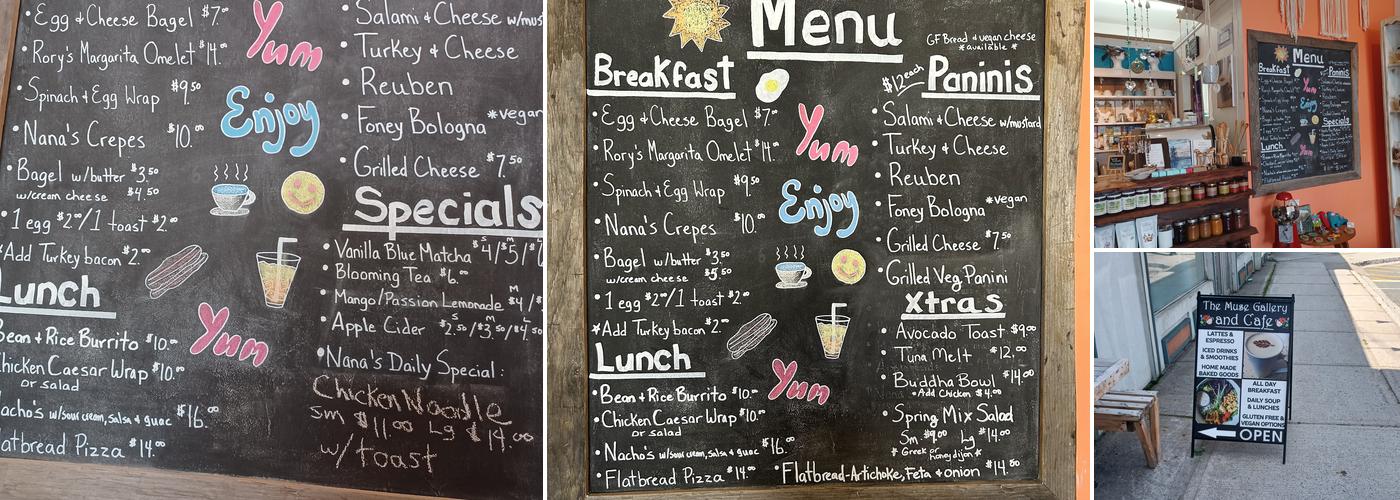 Egg & Cheese Bagel $7.00
Rory's Margarita Omelet $14.00
Spinach & Egg Wrap $9.50
Nana's Crepes $10.00
Bagel w/butter $3.50
w/cream cheese $4.50
1 egg $2.00/1 toast $2.00
Add Turkey bacon $2.00
Lunch
Bean & Rice Burrito $10.00
Chicken Caesar Wrap $10.00
or salad
Nacho's w/sour cream, salsa & guac $16.00
Flatbread Pizza $14.00
Yum
Enjoy
Yum
Salami & Cheese w/mus
Turkey & Cheese
Reuben
Foney Bologna *vegan
Grilled Cheese $7.50
Specials
Vanilla Blue Matcha S $4/ M $5/
Blooming Tea $6.00
Mango/Passion Lemonade M $4/$
Apple Cider S $2.50/ M $3.50/$4.50
Nana's Daily Special:
Chicken Noodle
sm $11.00 Lg $14.00
w/toast
Menu
GF Bread & vegan cheese
*available*
Breakfast
Egg & Cheese Bagel $7.00
Rory's Margarita Omelet $14.00
Spinach & Egg Wrap $9.50
Nana's Crepes $10.00
Bagel w/butter $3.50
w/cream cheese $5.50
1 egg $2.00/1 toast $2.00
*Add Turkey bacon $2.00
Lunch
Bean & Rice Burrito $10.00
Chicken Caesar Wrap $10.00
or salad
Nacho's w/sour cream, salsa & guac $16.00
Flatbread Pizza $14.00
Yum
Enjoy
Yum
$12 each Paninis
Salami & Cheese w/mustard
Turkey & Cheese
Reuben
Foney Bologna *vegan
Grilled Cheese $7.50
Grilled Veg Panini
Xtras
Avocado Toast $9.00
Tuna Melt $12.00
Buddha Bowl $14.00
Add Chicken $4.00
Spring Mix Salad
Sm $9.00 Lg $14.00
*Greek or honey dijon*
Flatbread-Artichoke, Feta & onion $14.50
Menu
Breakfast
Paninis
Yum
Enjoy
Specials
Lunch
Yum
The Muse Gallery
and Cafe
LATTES &
ESPRESSO
ICED DRINKS
& SMOOTHIES
HOME MADE
BAKED GOODS
ALL DAY
BREAKFAST
DAILY SOUP
& LUNCHES
GLUTEN FREE &
VEGAN OPTIONS
OPEN